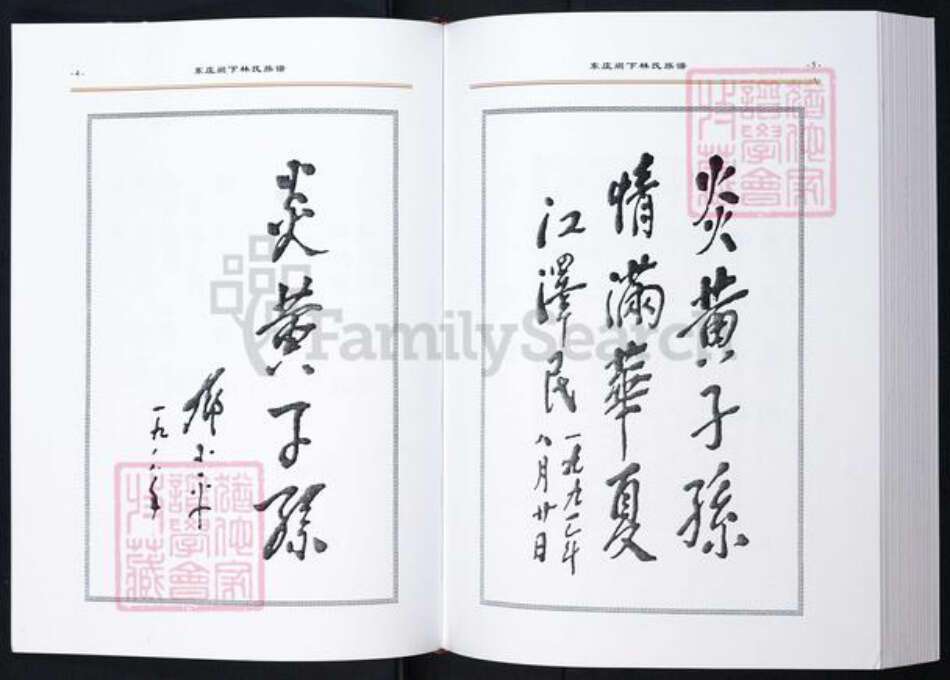 ·4·
东庄湖下林氏族谱
炎黄子孫
鄧小平
一九八八年
东庄湖下林氏族谱
·5·
炎黄子孫
情滿華夏
江澤民
一九九一年
八月廿日
猶他家
譜學會
收藏
猶他家
譜學會
收藏
FamilySearch